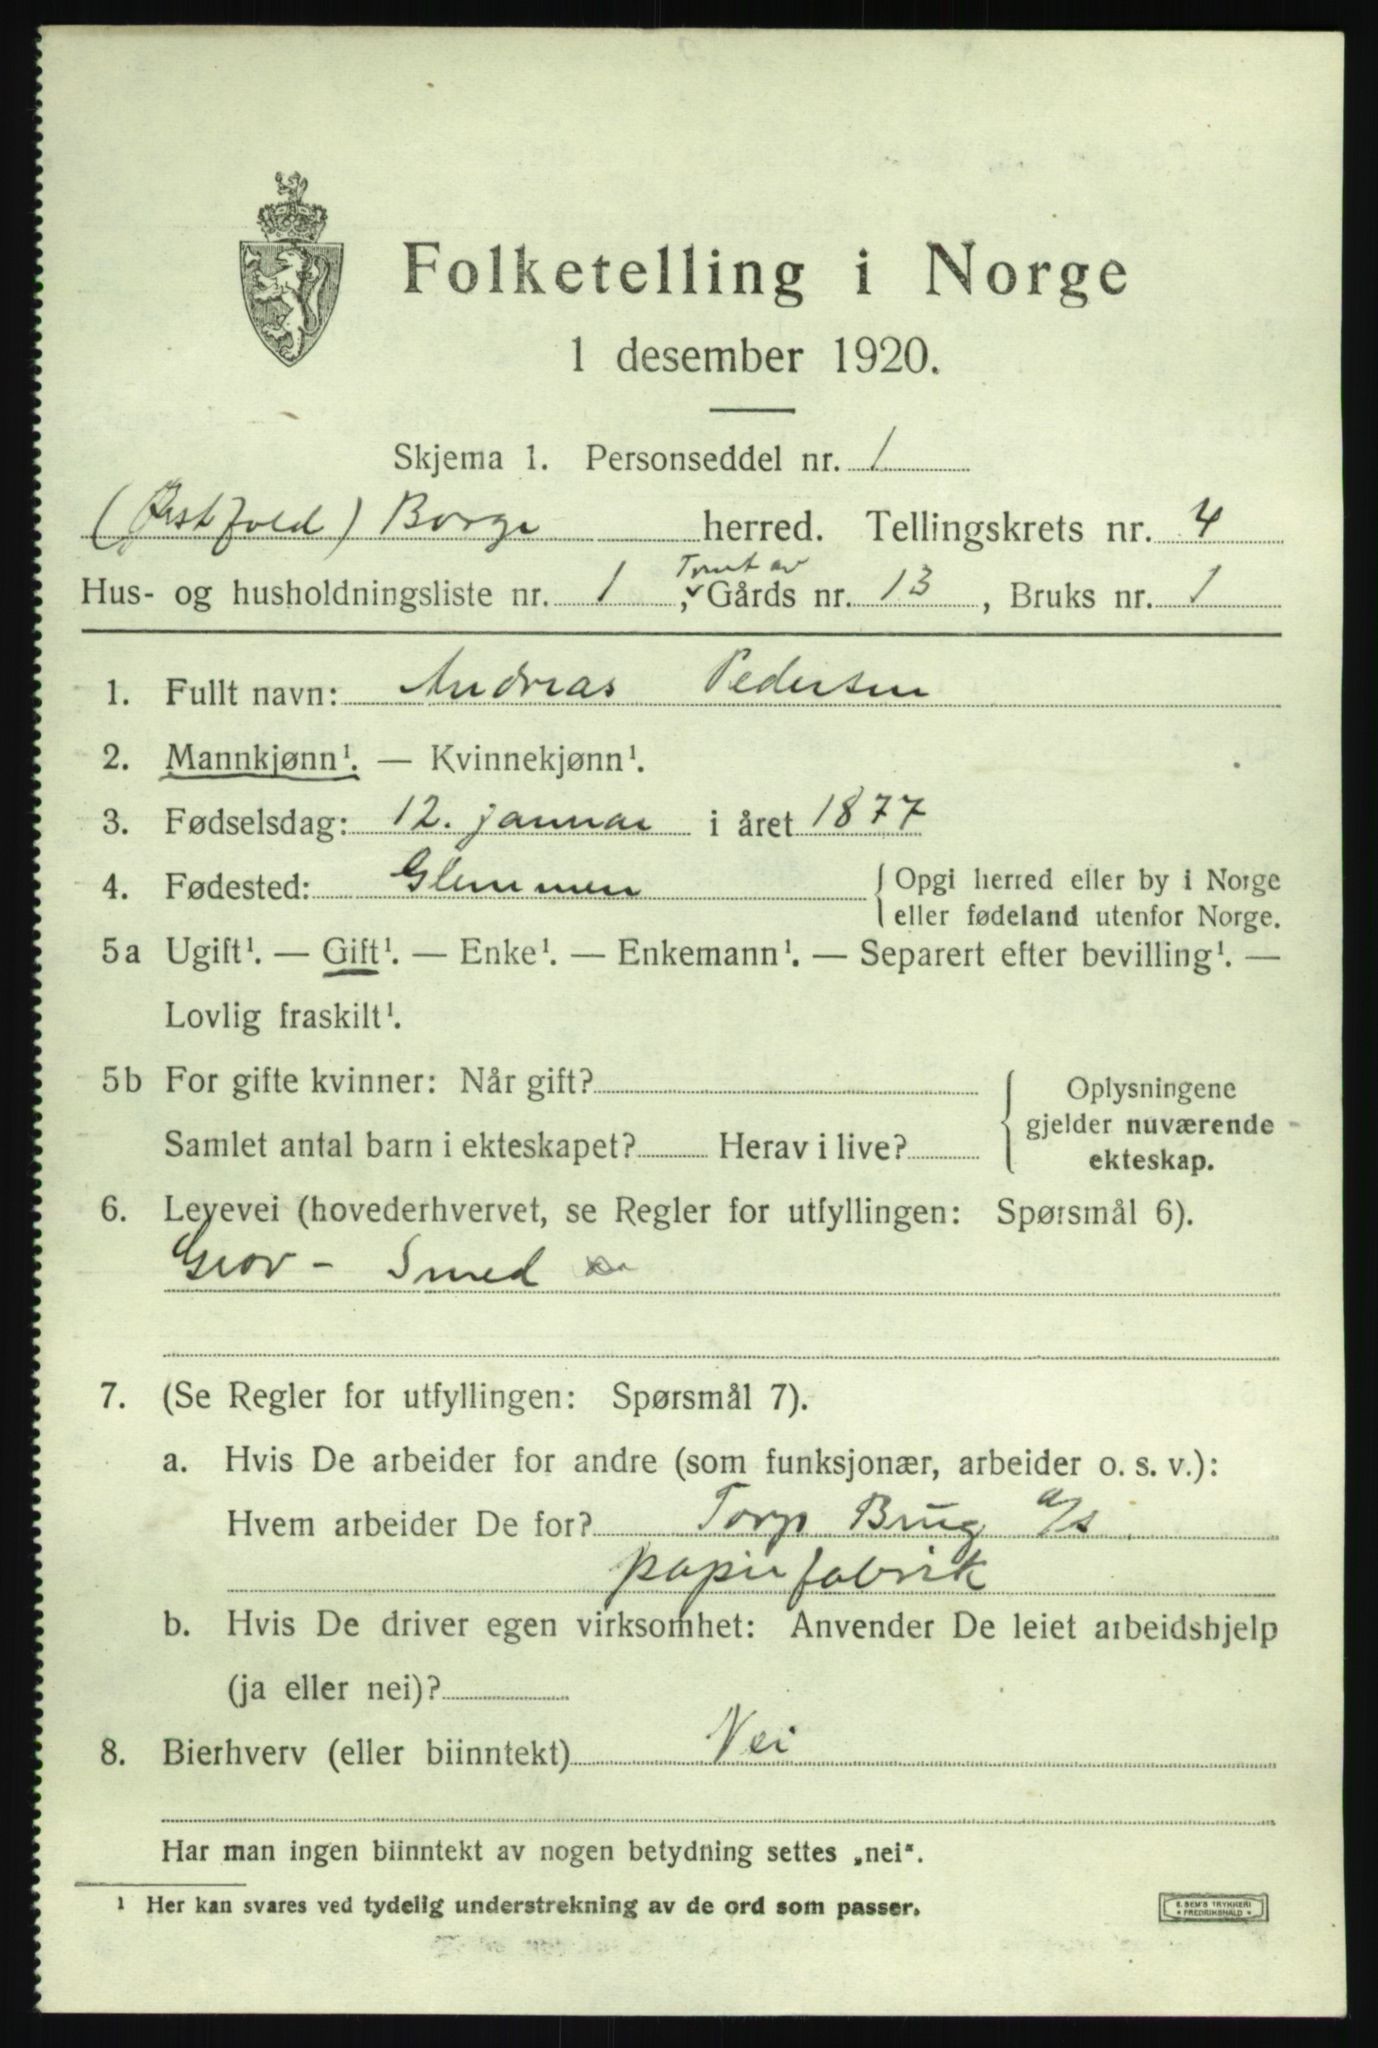 Folketelling i Norge
1 desember 1920.
Skjema 1. Personseddel nr. 1
(Østfold) Borge herred. Tellingskrets nr. 4
Tomt av
Hus- og husholdningsliste nr. 1, Gårds nr. 13, Bruks nr. 1
1. Fullt navn: Andreas Pedersen
2. Mannkjønn¹. — Kvinnekjønn¹.
3. Fødselsdag: 12. januar i året 1877
4. Fødested: Glemmen { Opgi herred eller by i Norge
eller fødeland utenfor Norge.
5a Ugift¹. — Gift¹. — Enke¹. — Enkemann¹. — Separert efter bevilling¹. —
Lovlig fraskilt¹.
5b For gifte kvinner: Når gift? { Oplysningene
gjelder nuværende
Samlet antal barn i ekteskapet? Herav i live?
ekteskap.
6. Levevei (hovederhvervet, se Regler for utfyllingen: Spørsmål 6).
Grov - Smed
7. (Se Regler for utfyllingen: Spørsmål 7).
a. Hvis De arbeider for andre (som funksjonær, arbeider o. s. v.):
Hvem arbeider De for? Torp Brug a/s
papirfabrik
b. Hvis De driver egen virksomhet: Anvender De leiet arbeidshjelp
(ja eller nei)?
8. Bierhverv (eller biinntekt) Nei
Har man ingen biinntekt av nogen betydning settes „nei“.
¹ Her kan svares ved tydelig understrekning av de ord som passer.
E. SEM'S TRYKKERI
* FREDRIKSHALD *